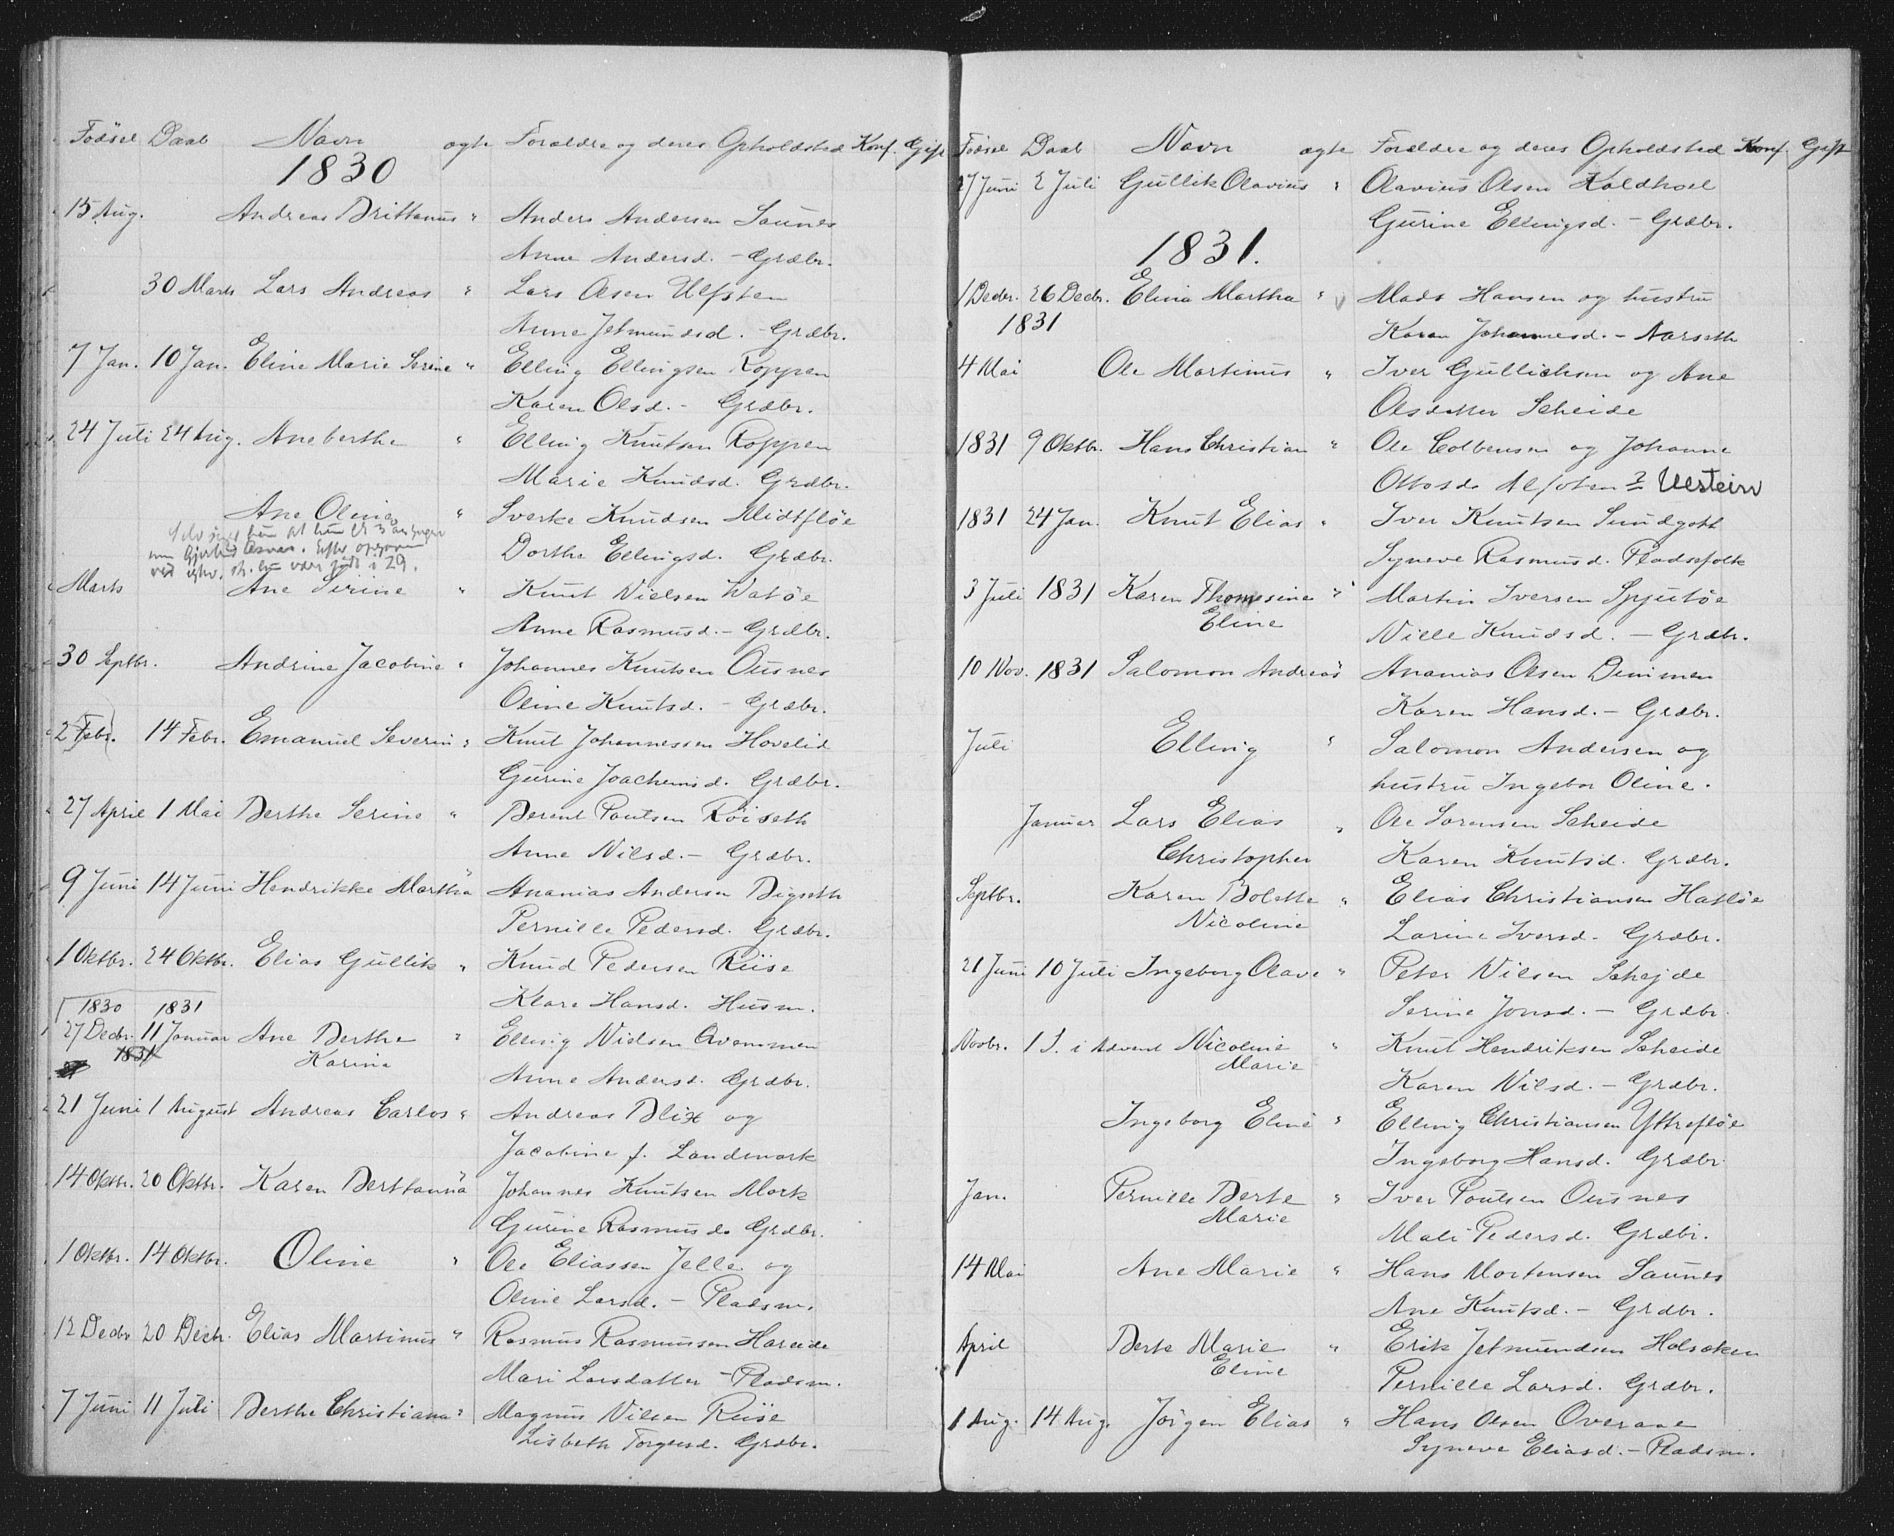 Fødsel Daab Navn ægte Forældre og deres Opholdsted Konf. Gift
1830
15 Aug. Andreas Brittanus " Anders Andersen Saunes
Anne Andersd. - Grdbr.
30 Marts Lars Andreas " Lars Olsen Ulfsten
Anne Jetmundsd. - Grdbr.
7 Jan. 10 Jan. Eline Marie Serine " Elling Ellingsen Koppen
Karen Olsd. - Grdbr.
24 Juli 24 Aug. Aneberthe " Elling Knutsen Koppen
Marie Knudsd. Grdbr.
Ane Oline " Sverke Knudsen Midtfløe
Selv siger hun at hun er 3 aar yngre
Dorthe Ellingsd. Grdbr.
Marts Ane Serine " Knut Nielsen Watøe
Anne Rasmusd. - Grdbr.
30 Septbr. Andrine Jacobine " Johannes Knutsen Ousnes
Oline Knutsd. - Grdbr.
2 Febr. 14 Febr. Emanuel Severin " Knut Johannessen Hovelid
Gurine Joachemsd. Grdbr.
27 April 1 Mai Berthe Serine " Berent Poulsen Röiseth
Anne Nilsd. - Grdbr.
9 Juni 14 Juni Hendrikke Martha " Ananias Andersen Bigseth
Pernille Pedersd. Grdbr.
1 Oktbr. 24 Oktbr. Elias Gullik " Knud Pedersen Riise
Klare Hansd. Husm.
1830 1831
27 Decbr. 11 Januar Ane Berthe " Elling Nielsen Qvammen
1831 Karine
Anne Andersd. Grdbr.
21 Juni 1 August Andreas Carlos " Andreas Blix og
Jacobine f. Landmark
14 Oktbr. 20 Oktbr. Karen Berttanna " Johannes Knutsen Mork
Gurine Rasmusd. Grdbr.
1 Oktbr. 14 Oktbr. Oline " Ole Eliassen Jelle og
Oline Larsd. - Pladsm.
12 Decbr 20 Decbr. Elias Martinus " Rasmus Rasmussen Hareide
Mari Larsdatter - Pladsm.
7 Juni 11 Juli Berthe Christiana " Magnus Nilsen Riise
Lisbeth Torgersd. Grdbr.
Fødsel Daab Navn ægte Forældre og deres Opholdsted Konf. Gift
27 Juni 2 Juli Gullik Olavius " Olavius Olsen Kaldhoel
Gurine Ellingsd. - Grdbr.
1831.
1 Decbr. 26 Decbr. Elina Martha " Mads Hansen og hustru
1831
Karen Johannesd. - Aarseth
4 Mai Ole Martinus " Iver Gullichsen og Ane
Olsdatter Scheide
1831 9 Oktbr. Hans Christian " Ole Colbensen og Johanne
Ottosd. Alfoten ? Ulstein
1831 24 Jan. Knut Elias " Iver Knutsen Sundgott
Syneve Rasmusd. Pladsfolk
3 Juli 1831 Karen Thomsine " Martin Iversen Spjutøe
Eline
Nille Knudsd. - Grdbr.
10 Nov. 1831 Salomon Andreas " Ananias Olsen Dimmen
Karen Hansd. - Grdbr.
Juli Elling " Salomon Andersen og
hustru Ingebor Oline.
Januar Lars Elias " Ole Sørensen Scheide
Christopher Karen Knutsd. Grdbr.
Septbr. Karen Bolette " Elias Christiansen Hatløe
Nicoline
Larine Iversd. Grdbr.
21 Juni 10 Juli Ingeborg Olave " Peter Nilsen Schejde
Serine Jonsd. - Grdbr.
Novbr. 1 S. i Advent Nicoline " Knut Hendriksen Scheide
Marie
Karen Nilsd. - Grdbr.
Ingeborg Eline " Elling Christiansen Yttrefløe
Ingeborg Hansd. Grdbr.
Jan. Pernille Berte " Iver Poulsen Ousnes
Marie
Mali Pedersd. Grdbr.
14 Mai Ane Marie " Hans Mortensen Saunes
Ane Knutsd. - Grdbr.
April Berte Marie " Erik Jetmundsen Holsæken
Eline
Pernille Larsd. Grdbr.
1 Aug. 14 Aug. Jørgen Elias " Hans Olsen Overaae
Syneve Eliasd. - Pladsm.